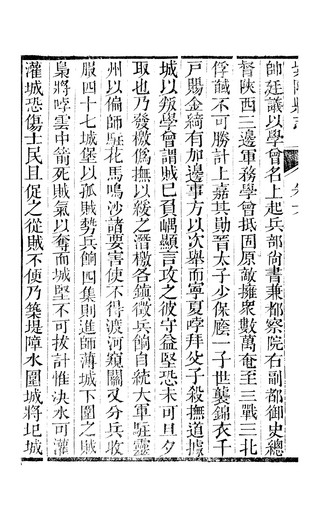 帥廷議以學曾名上起兵部尚書兼都察院右副都御史總
督陝西三邊軍務學曾抵固原敵擁衆數萬奄至三戰三北
俘馘不可勝計上嘉其勳晉太子少保廕一子世襲錦衣千
戸賜金綺有加邊事方以次舉而寧夏哱拜父子殺撫道據
城以叛學曾謂賊巳負嵎顯言攻之彼守益堅恐未可旦夕
取也乃發檄僞撫以綏之潛檄各鎮徵兵餉自統大軍駐靈
州以偏師駐花馬鳴沙諸要害使不得渡河窺關又分兵收
服四十七城堡以孤賊勢兵餉四集則進師薄城下圍之賊
梟將哱雲中箭死賊氣以奪而城堅不可拔計惟決水可灌
灌城恐傷士民且促之從賊不便乃築堤障水圍城將圮城